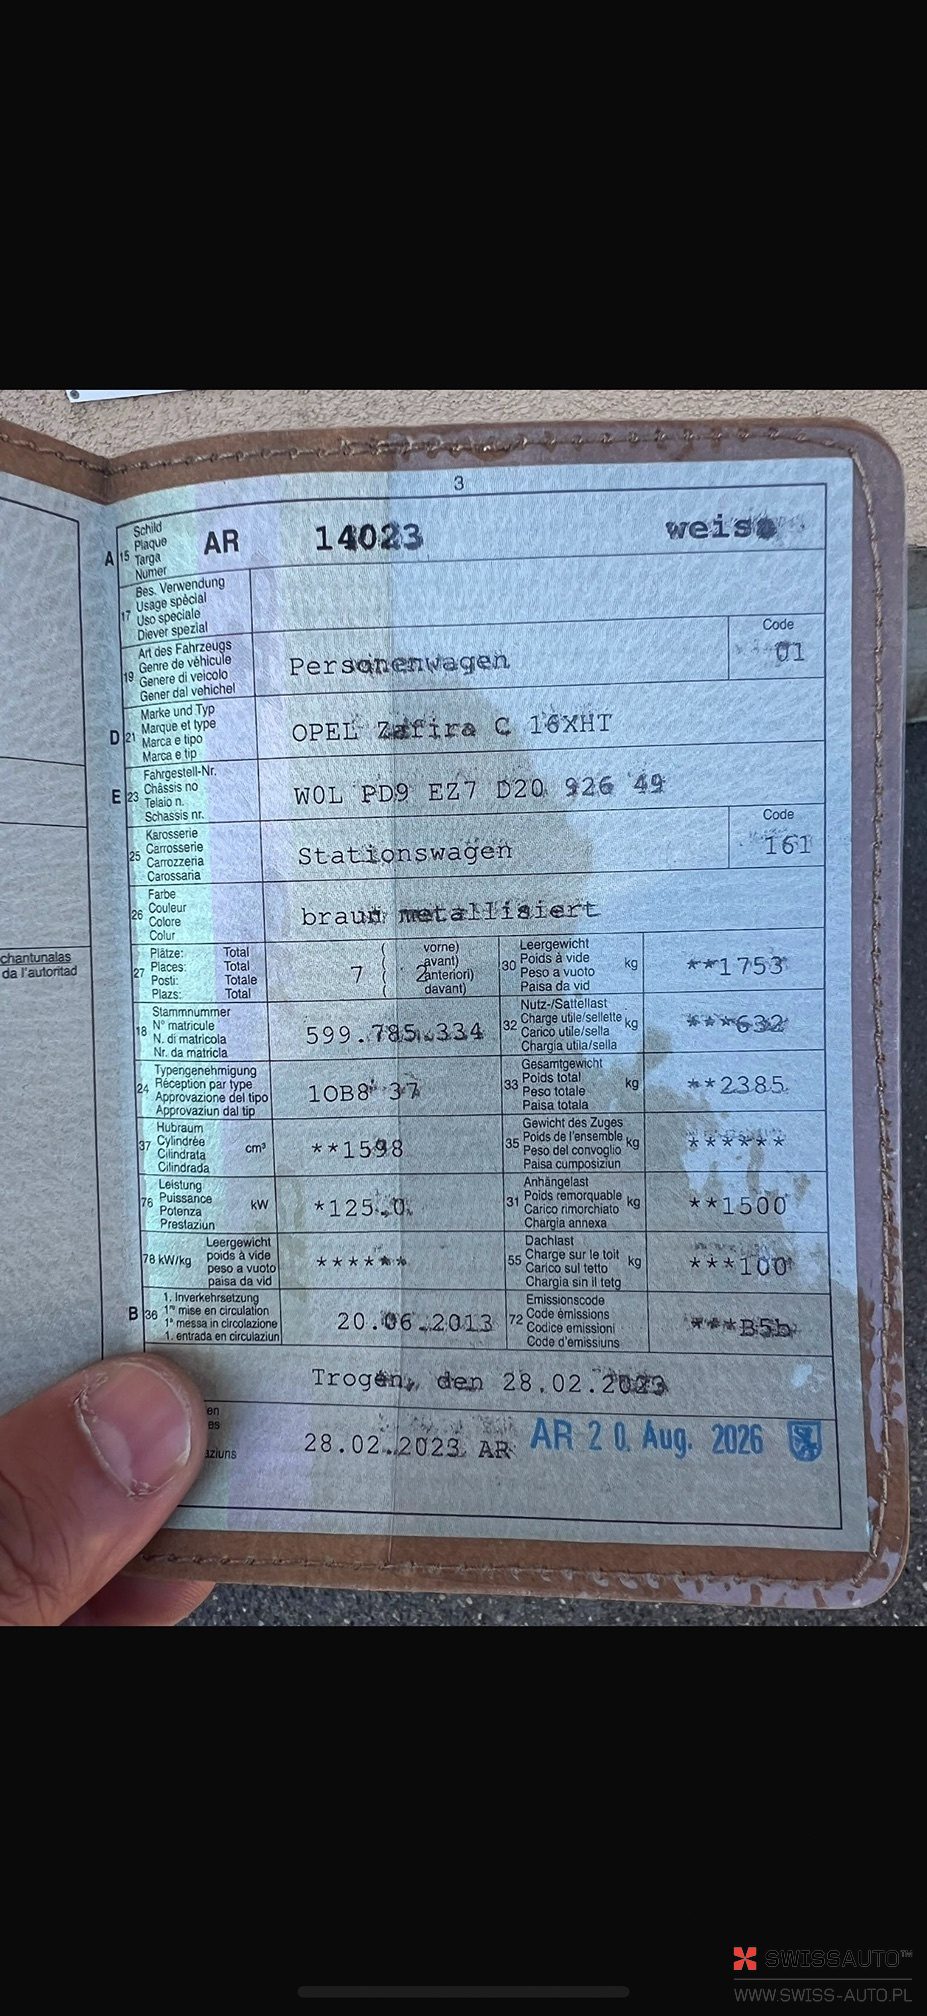 3
A 15 Schild
Plaque
Targa
Numer
AR 14023 weiss
17 Bes. Verwendung
Usage spécial
Uso speciale
Diever spezial
19 Art des Fahrzeugs
Genre de véhicule
Genere di veicolo
Gener dal vehichel
Personenwagen
Code
01
D 21 Marke und Typ
Marque et type
Marca e tipo
Marca e tip
OPEL Zafira C 16XHT
E 23 Fahrgestell-Nr.
Châssis no
Telaio n.
Schassis nr.
W0L PD9 EZ7 D20 926 49
25 Karosserie
Carrosserie
Carrozzeria
Carossaria
Stationswagen
Code
161
26 Farbe
Couleur
Colore
Colur
braun metallisiert
27 Plätze: Total
Places: Total
Posti: Totale
Plazs: Total
7 ( 2 vorne)
avant)
anteriori)
( davant)
30 Leergewicht
Poids à vide
Peso a vuoto
Paisa da vid
kg
**1753
18 Stammnummer
N° matricule
N. di matricola
Nr. da matricla
599.785.334
32 Nutz-/Sattellast
Charge utile/sellette
Carico utile/sella
Chargia utila/sella
kg
***632
24 Typengenehmigung
Réception par type
Approvazione del tipo
Approvaziun dal tip
1OB8 37
33 Gesamtgewicht
Poids total
Peso totale
Paisa totala
kg
**2385
37 Hubraum
Cylindrée
Cilindrata
Cilindrada
cm³
**1598
35 Gewicht des Zuges
Poids de l'ensemble
Peso del convoglio
Paisa cumposiziun
kg
******
76 Leistung
Puissance
Potenza
Prestaziun
kW
*125.0
31 Anhängelast
Poids remorquable
Carico rimorchiato
Chargia annexa
kg
**1500
78 kW/kg
Leergewicht
poids à vide
peso a vuoto
paisa da vid
******
55 Dachlast
Charge sur le toit
Carico sul tetto
Chargia sin il tetg
kg
***100
B 36 1. Inverkehrsetzung
1re mise en circulation
1a messa in circolazione
1. entrada en circulaziun
20.06.2013
72 Emissionscode
Code émissions
Codice emissioni
Code d'emissiuns
***B5b
Trogen, den 28.02.2023
en
es
aziuns
28.02.2023 AR
AR 20. Aug. 2026
chantunalas
da l'autoritad
SWISSAUTO™
WWW.SWISS-AUTO.PL